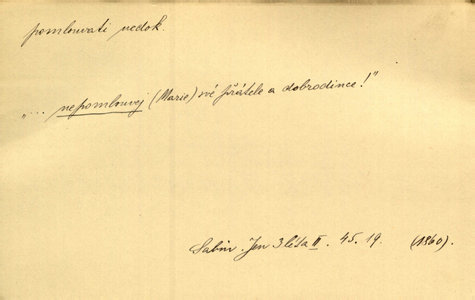 pomlouvati nedok.
„... nepomlouvej (Marie) své přátele a dobrodince!"
Sabin. Jen 3 léta II. 45. 19. (1860).